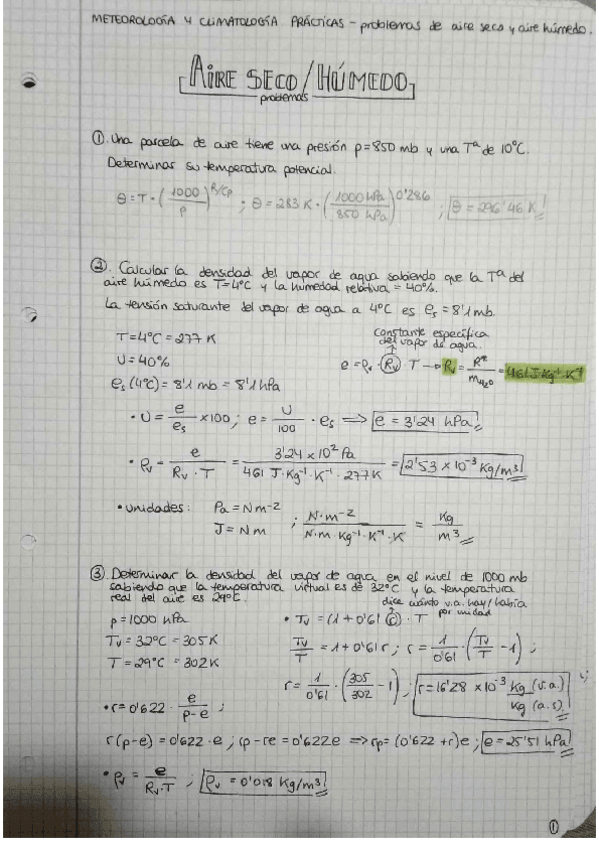 METEOROLOGÍA Y CLIMATOLOGÍA PRÁCTICAS - problemas de aire seco y aire húmedo.
AIRE SECO/HÚMEDO
problemas
① Una parcela de aire tiene una presión p=850 mb y una Tª de 10°C.
Determinar su temperatura potencial.
θ = T · (1000/p)^R/Cp ; θ = 283 K · (1000 hPa/850 hPa)^0'286 ; θ = 296'46 K
② Calcular la densidad del vapor de agua sabiendo que la Tª del
aire húmedo es T=4°C y la humedad relativa = 40%.
La tensión saturante del vapor de agua a 4°C es es = 8'1 mb.
Constante específica
del vapor de agua.
T=4°C = 277 K
U = 40%
e = ρv · Rv · T → Rv = R*/mH2O = 461 J·Kg⁻¹·K⁻¹
es (4°C) = 8'1 mb = 8'1 hPa
· U = e/es × 100 ; e = U/100 · es ⟹ e = 3'24 hPa
· ρv = e/(Rv · T) = 3'24 × 10² Pa/(461 J·Kg⁻¹·K⁻¹ · 277K) = 2'53 × 10⁻³ Kg/m³
· unidades: Pa = N m⁻² ; J = N m ; N·m⁻²/(N·m·Kg⁻¹·K⁻¹·K) = Kg/m³
③ Determinar la densidad del vapor de agua en el nivel de 1000 mb
sabiendo que la temperatura virtual es de 32°C y la temperatura
real del aire es 29°C.
dice cuánto v.a. hay/habría
por unidad
p = 1000 hPa
· Tv = (1 + 0'61 r) · T
Tv = 32°C = 305 K
T = 29°C = 302 K
Tv/T = 1 + 0'61 r ; r = 1/0'61 · (Tv/T - 1) ;
r = 1/0'61 · (305/302 - 1) ; r = 16'28 × 10⁻³ Kg (v.a.)/Kg (a.s.)
· r = 0'622 · e/(p-e) ;
r(p-e) = 0'622 · e ; rp - re = 0'622e ⟹ rp = (0'622 + r)e ; e = 25'51 hPa
· ρv = e/(Rv·T) ; ρv = 0'018 Kg/m³
①